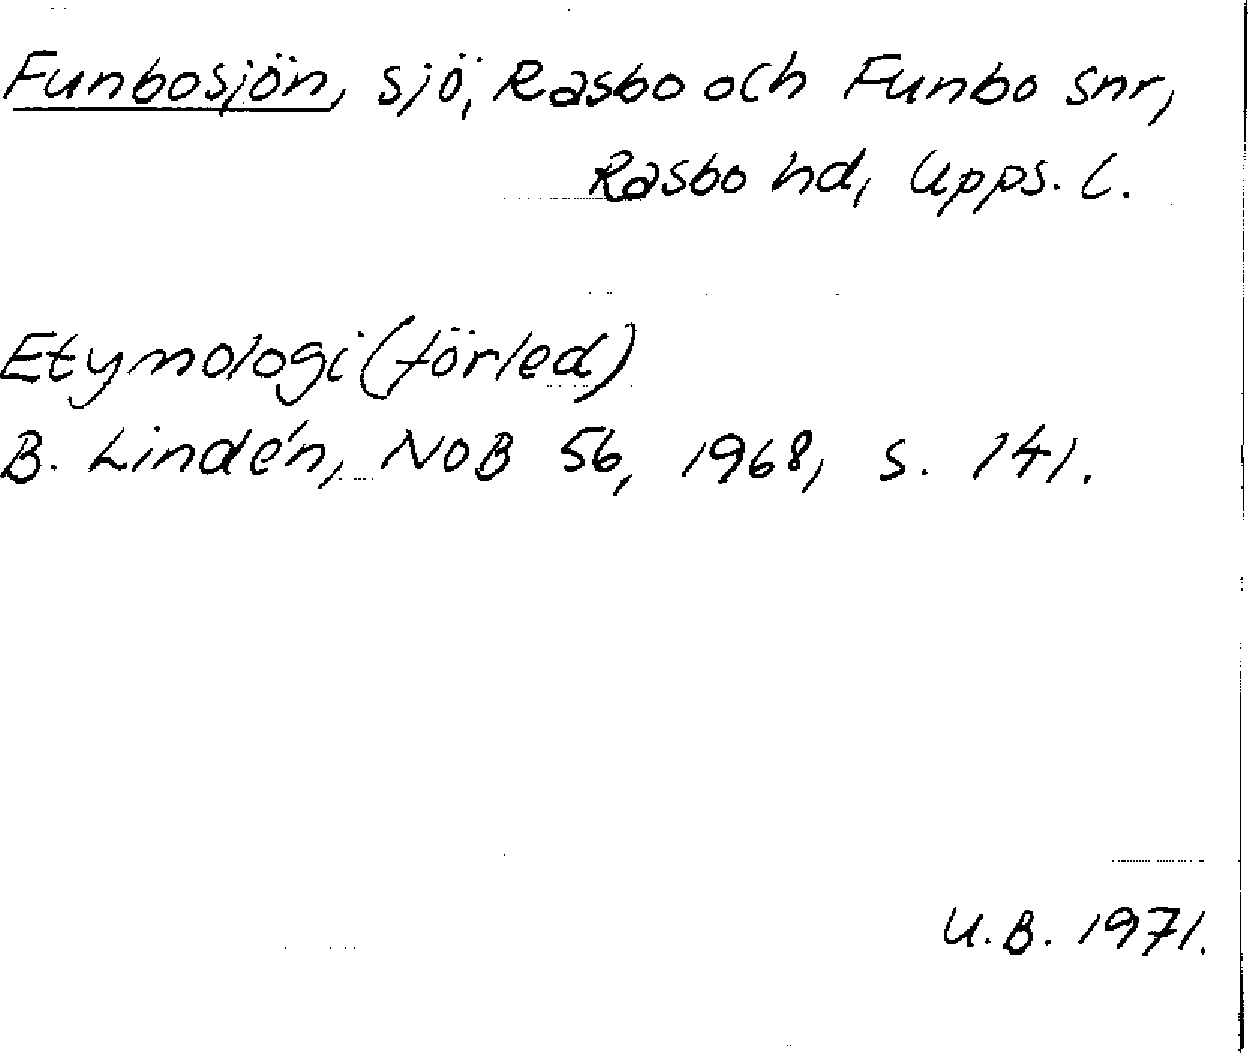 Funbosjön, sjö, Rasbo och Funbo snr,
Rasbo hd, Upps. l.
Etymologi (förled)
B. Lindén, NoB 56, 1968, s. 141.
U.B. 1971.